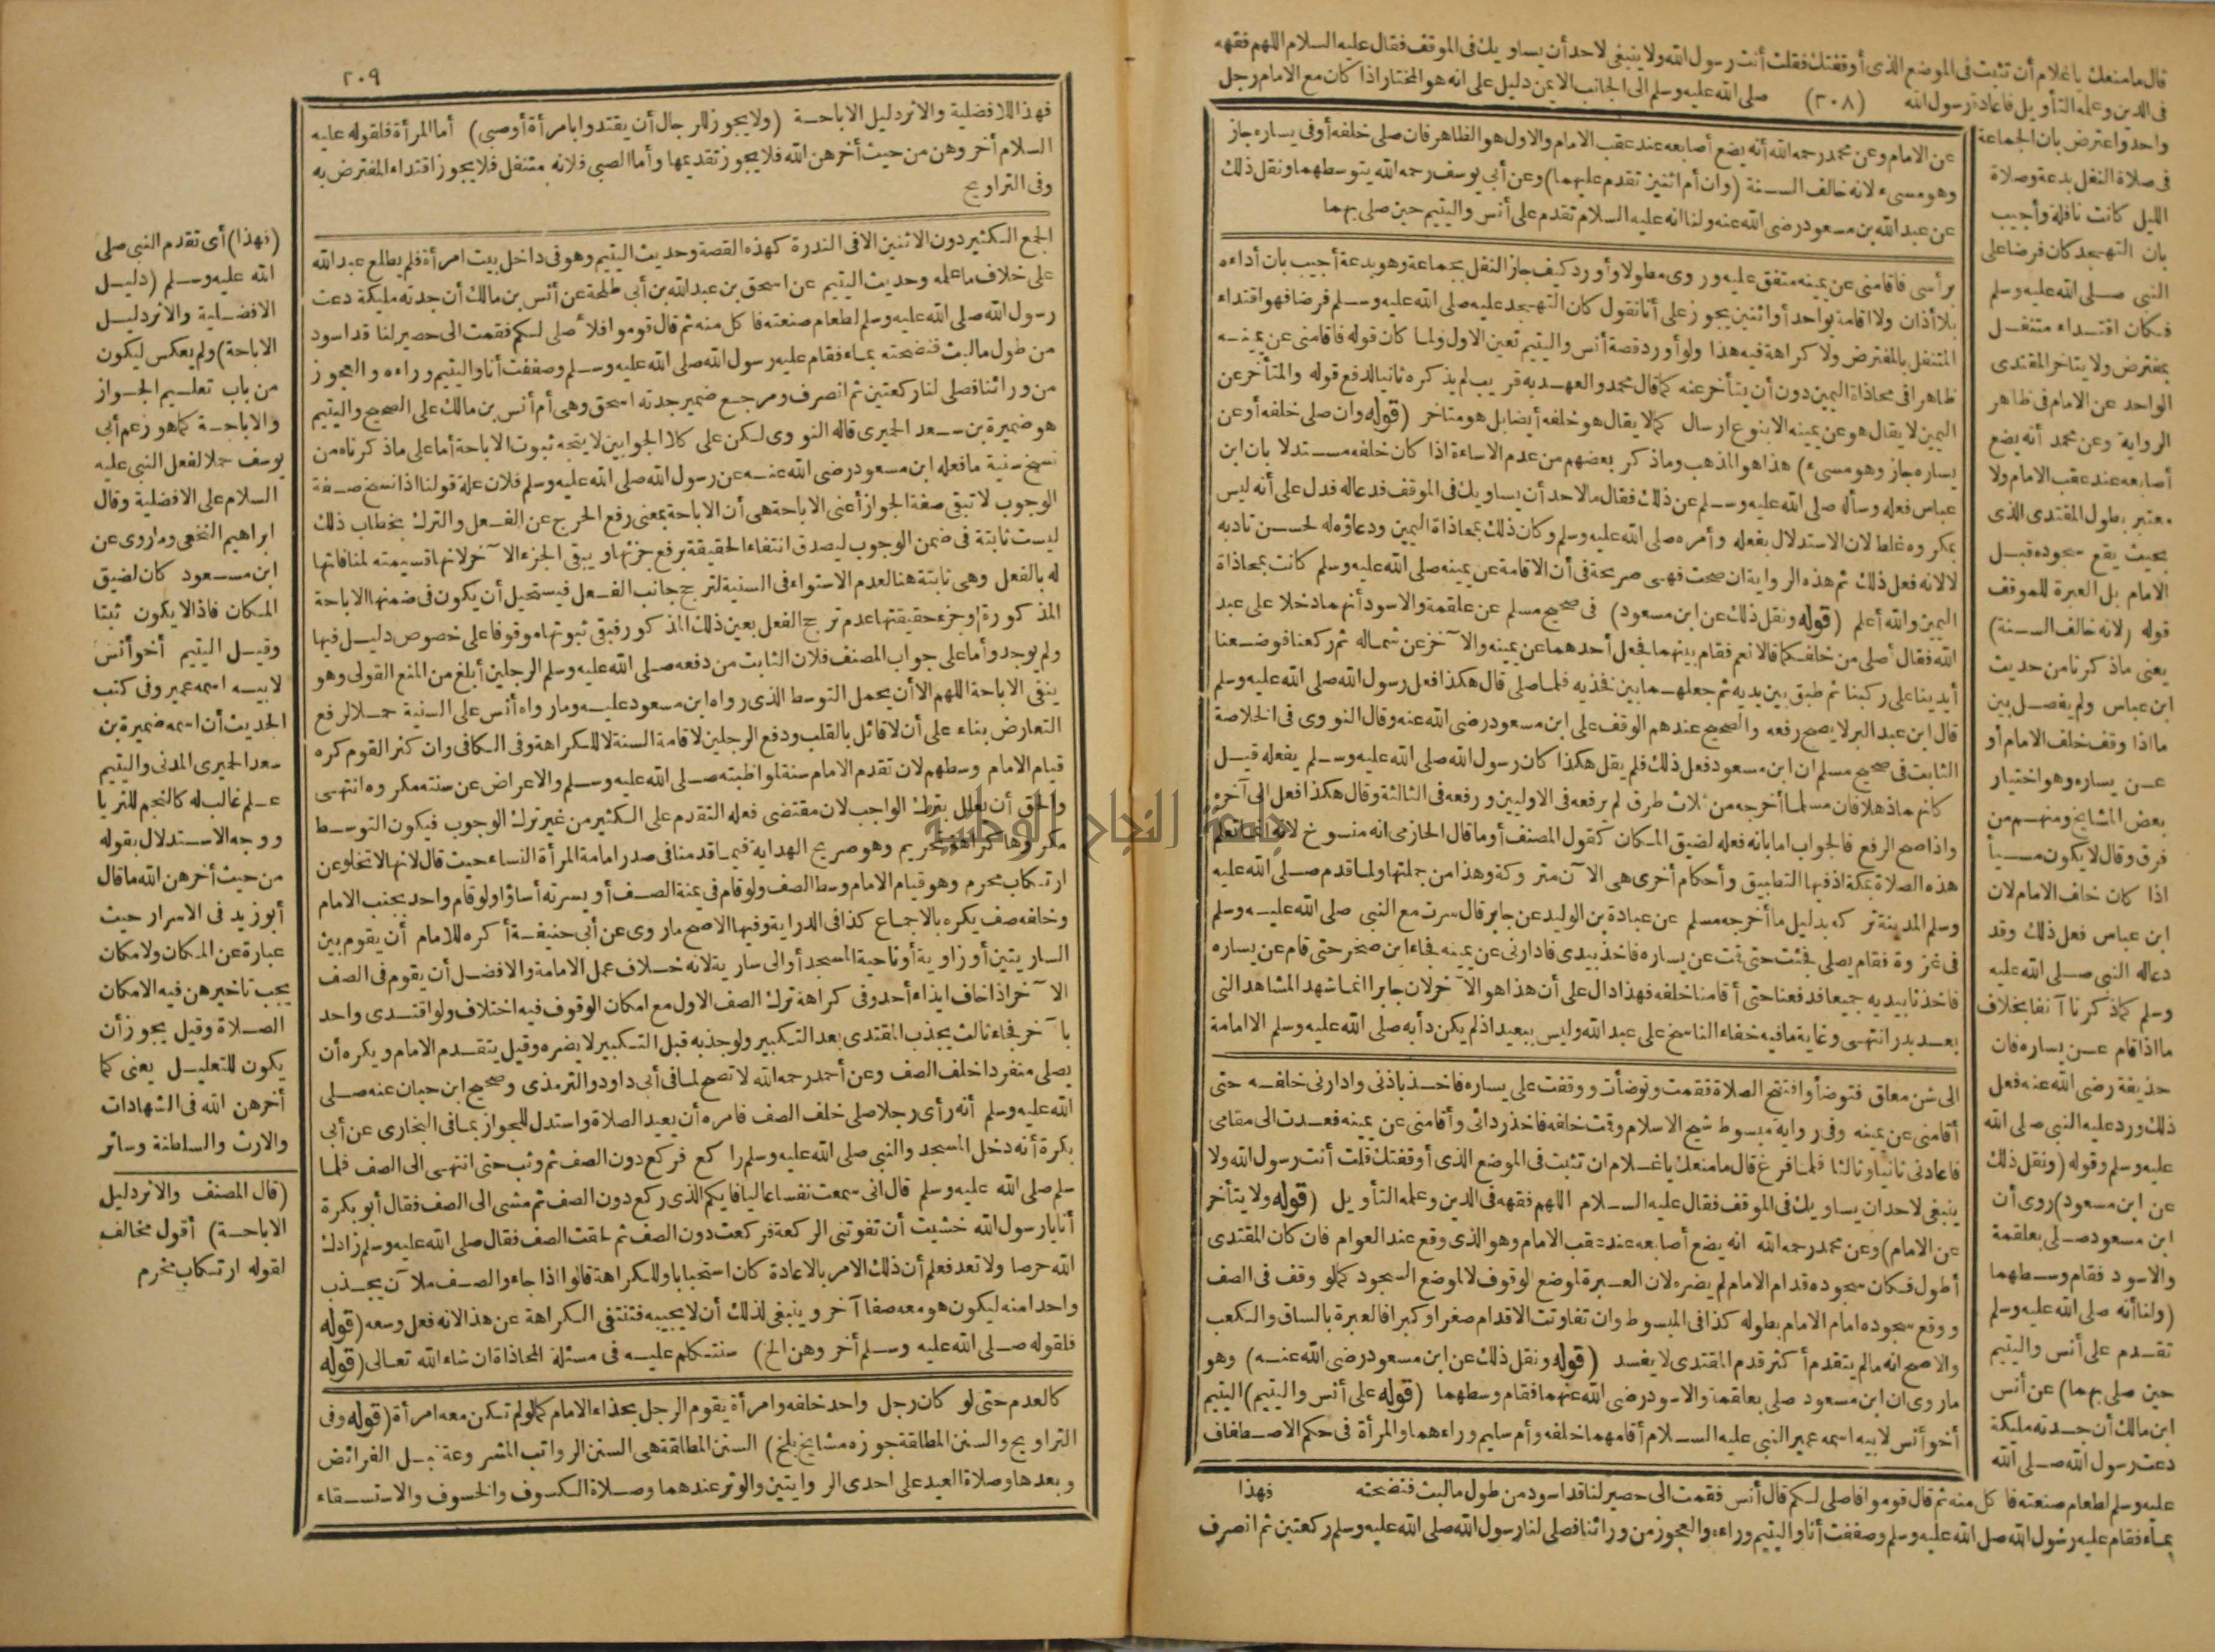 قال مامنعك ياغلام أن تثبت فى الموضع الذى أوقفتك فقلت أنت رسول الله ولا ينبغى لاحد أن يساويك فى الموقف فقال عليه السلام اللهم فقهه
فى الدين وعلمه التأويل فاعادة رسول الله (٢٠٨) صلى الله عليه وسلم الى الجانب الايمن دليل على انه هو المختار اذا كان مع الامام رجل
واحد واعترض بان الجماعة
فى صلاة النفل بدعة وصلاة
الليل كانت نافلة وأجيب
بان التهجد كان فرضا على
النبى صلى الله عليه وسلم
فكان اقتداء متنفل
بمفترض ولا يتاخر المقتدى
الواحد عن الامام فى ظاهر
الرواية وعن محمد أنه يضع
أصابعه عند عقب الامام ولا
معتبر بطول المقتدى الذى
بحيث يقع سجوده قبل
الامام بل العبرة للموقف
قوله (لانه خالف السنة)
يعنى ماذكرنا من حديث
ابن عباس ولم يفصل بين
مااذا وقف خلف الامام أو
عن يساره وهو اختيار
بعض المشايخ ومنهم من
فرق وقال لا يكون مسيأ
اذا كان خلف الامام لان
ابن عباس فعل ذلك وقد
دعاله النبى صلى الله عليه
وسلم كماذكرنا آنفا بخلاف
مااذا قام عن يساره فان
حذيفة رضى الله عنه فعل
ذلك ورد عليه النبى صلى الله
عليه وسلم وقوله (ونقل ذلك
عن ابن مسعود) روى أن
ابن مسعود صلى بعلقمة
والاسود فقام وسطهما
(ولنا أنه صلى الله عليه وسلم
تقدم على أنس واليتيم
حين صلى بهما) عن أنس
ابن مالك أن جدته مليكة
دعت رسول الله صلى الله
عن الامام وعن محمد رحمه الله أنه يضع أصابعه عند عقب الامام والاول هو الظاهر فان صلى خلفه أوفى يساره جاز
وهو مسىء لانه خالف السنة (وان أم اثنين تقدم عليهما) وعن أبى يوسف رحمه الله يتوسطهما ونقل ذلك
عن عبد الله بن مسعود رضى الله عنه ولنا انه عليه السلام تقدم على أنس واليتيم حين صلى بهما
برأسى فاقامنى عن يمينه متفق عليه وروى مطولا وأورد كيف جاز النفل بجماعة وهو بدعة أجيب بان أداءه
بلا أذان ولا اقامة بواحد أو اثنين يجوز على أنا نقول كان التهجد عليه صلى الله عليه وسلم فرضا فهو اقتداء
المتنفل بالمفترض ولا كراهة فيه هذا ولو أورد قصة أنس واليتيم تعين الاول ولما كان قوله فاقامنى عن يمينه
ظاهرا فى محاذاة اليمين دون أن يتأخر عنه كما قال محمد والعهد به قريب لم يذكره ثانيا لدفع قوله والمتأخر عن
اليمين لا يقال هو عن يمينه الابنوع ارسال كما لا يقال هو خلفه أيضا بل هو متاخر (قوله وان صلى خلفه أو عن
يساره جاز وهو مسىء) هذا هو المذهب وماذكر بعضهم من عدم الاساءة اذا كان خلفه مستدلا بان ابن
عباس فعله وسأله صلى الله عليه وسلم عن ذلك فقال مالاحد أن يساويك فى الموقف فدعاله فدل على أنه ليس
بمكروه غلط لان الاستدلال بفعله وأمره صلى الله عليه وسلم وكان ذلك بمحاذاة اليمين ودعاؤه له لحسن تادبه
لالانه فعل ذلك ثم هذه الرواية ان صحت فهى صريحة فى أن الاقامة عن يمينه صلى الله عليه وسلم كانت بمحاذاة
اليمين والله أعلم (قوله ونقل ذلك عن ابن مسعود) فى صحيح مسلم عن علقمة والاسود أنهما دخلا على عبد
الله فقال أصلى من خلفكما قالا نعم فقام بينهما فجعل أحدهما عن يمينه والا خر عن شماله ثم ركعنا فوضعنا
أيدينا على ركبنا ثم طبق بين يديه ثم جعلهما بين فخذيه فلما صلى قال هكذا فعل رسول الله صلى الله عليه وسلم
قال ابن عبد البر لا يصح رفعه والصحيح عندهم الوقف على ابن مسعود رضى الله عنه وقال النووى فى الخلاصة
الثابت فى صحيح مسلم ان ابن مسعود فعل ذلك فلم يقل هكذا كان رسول الله صلى الله عليه وسلم يفعله قيل
كانهما ذهلا فان مسلما أخرجه من ثلاث طرق لم يرفعه فى الاوليين ورفعه فى الثالثة وقال هكذا فعل الى آخره
واذا صح الرفع فالجواب اما بانه فعله لضيق المكان كقول المصنف أو ما قال الحازمى انه منسوخ لانه انما تعلم
هذه الصلاة بمكة اذ فيها التطبيق وأحكام أخرى هى الآن متروكة وهذا من جملتها ولما قدم صلى الله عليه
وسلم المدينة تركه بدليل ما أخرجه مسلم عن عبادة بن الوليد عن جابر قال سرت مع النبى صلى الله عليه وسلم
فى غزوة فقام يصلى فجئت حتى قمت عن يساره فاخذ بيدى فادارنى عن يمينه فجاء ابن صخر حتى قام عن يساره
فاخذنا بيديه جميعا فدفعنا حتى أقامنا خلفه فهذا دال على أن هذا هو الآخر لان جابرا انما شهد المشاهد التى
بعد بدر انتهى وغاية ما فيه خفاء الناسخ على عبد الله وليس ببعيد اذ لم يكن دأبه صلى الله عليه وسلم الا امامة
الى شن معلق فتوضأ وافتتح الصلاة فقمت وتوضأت ووقفت على يساره فاخذ باذنى وادارنى خلفه حتى
أقامنى عن يمينه وفى رواية مبسوط شيخ الاسلام وقمت خلفه فاخذ ردائى وأقامنى عن يمينه فعدت الى مقامى
فاعادنى ثانيا وثالثا فلما فرغ قال مامنعك ياغلام ان تثبت فى الموضع الذى أوقفتك قلت أنت رسول الله ولا
ينبغى لاحد ان يساويك فى الموقف فقال عليه السلام اللهم فقهه فى الدين وعلمه التأويل (قوله ولا يتأخر
عن الامام) وعن محمد رحمه الله انه يضع أصابعه عند عقب الامام وهو الذى وقع عند العوام فان كان المقتدى
أطول فكان سجوده قدام الامام لم يضره لان العبرة لموضع الوقوف لا لموضع السجود كما لو وقف فى الصف
ووقع سجوده امام الامام بطوله كذا فى المبسوط وان تفاوتت الاقدام صغرا وكبرا فالعبرة بالساق والكعب
والاصح انه مالم يتقدم أكثر قدم المقتدى لا يفسد (قوله ونقل ذلك عن ابن مسعود رضى الله عنه) وهو
ماروى ان ابن مسعود صلى بعلقمة والاسود رضى الله عنهما فقام وسطهما (قوله على أنس واليتيم) اليتيم
أخو أنس لابيه اسمه عمير النبى عليه السلام أقامهما خلفه وأم سليم وراءهما والمرأة فى حكم الاصطفاف
عليه وسلم لطعام صنعته فاكل منه ثم قال قوموا فاصلى لكم قال أنس فقمت الى حصير لنا قد اسود من طول ما لبث فنضحته فهذا
بماء فقام عليه رسول الله صلى الله عليه وسلم وصففت أنا واليتيم وراءه والعجوز من ورائنا فصلى لنا رسول الله صلى الله عليه وسلم ركعتين ثم انصرف
٢٠٩
فهذا للافضلية والاثر دليل الاباحة (ولا يجوز للرجال أن يقتدوا بامرأة أو صبى) أما المرأة فلقوله عليه
السلام أخروهن من حيث أخرهن الله فلا يجوز تقديمها وأما الصبى فلانه متنفل فلا يجوز اقتداء المفترض به
وفى التراويح
الجمع الكثير دون الاثنين الا فى الندرة كهذه القصة وحديث اليتيم وهو فى داخل بيت امرأة فلم يطلع عبد الله
على خلاف ما علمه وحديث اليتيم عن اسحق بن عبد الله بن أبى طلحة عن أنس بن مالك أن جدته مليكة دعت
رسول الله صلى الله عليه وسلم لطعام صنعته فاكل منه ثم قال قوموا فلأصلى لكم فقمت الى حصير لنا قد اسود
من طول مالبث فنضحته بماء فقام عليه رسول الله صلى الله عليه وسلم وصففت أنا واليتيم وراءه والعجوز
من ورائنا فصلى لنا ركعتين ثم انصرف ومرجع ضمير جدته اسحق وهى أم أنس بن مالك على الصحيح واليتيم
هو ضميرة بن سعد الحميرى قاله النووى لكن على كلا الجوابين لا يتجه ثبوت الاباحة أما على ماذكرناه من
نسخ سنية ما فعله ابن مسعود رضى الله عنه عن رسول الله صلى الله عليه وسلم فلان علة قولنا اذا نسخ صفة
الوجوب لا تبقى صفة الجواز أعنى الاباحة هى أن الاباحة بمعنى رفع الحرج عن الفعل والترك بخطاب ذلك
ليست ثابتة فى ضمن الوجوب ليصدق انتفاء الحقيقة برفع جزئها ويبقى الجزء الآخر لانها قسيمته لمنافاتها
له بالفعل وهى ثابتة هنا لعدم الاستواء فى السنية لترجح جانب الفعل فيستحيل أن يكون فى ضمنها الاباحة
المذكورة اوجزء حقيقتها عدم ترجح الفعل بعين ذلك المذكور فبقى ثبوتها موقوفا على خصوص دليل فيها
ولم يوجد وأما على جواب المصنف فلان الثابت من دفعه صلى الله عليه وسلم الرجلين أبلغ من المنع القولى وهو
ينفى الاباحة اللهم الا أن يحمل التوسط الذى رواه ابن مسعود عليه وما رواه أنس على السنية حملا لرفع
التعارض بناء على أن لا قائل بالقلب ودفع الرجلين لاقامة السنة لا للكراهة وفى الكافى وان كثر القوم كره
قيام الامام وسطهم لان تقدم الامام سنة لمواظبته صلى الله عليه وسلم والاعراض عن سنته مكروه انتهى
والحق أن يعلل بترك الواجب لان مقتضى فعله التقدم على الكثير من غير ترك الوجوب فيكون التوسط
مكروها كراهة تحريم وهو صريح الهداية فيما قدمنا فى صدر امامة المرأة النساء حيث قال لانها لا تخلو عن
ارتكاب محرم وهو قيام الامام وسط الصف ولو قام فى يمنة الصف أو يسرته أساؤا ولو قام واحد بجنب الامام
وخلفه صف يكره بالاجماع كذا فى الدراية وفيها الاصح ماروى عن أبى حنيفة أكره للامام أن يقوم بين
الساريتين أو زاوية أو ناحية المسجد أو الى سارية لانه خلاف عمل الامامة والافضل أن يقوم فى الصف
الآخر اذا خاف ايذاء أحد وفى كراهة ترك الصف الاول مع امكان الوقوف فيه اختلاف ولو اقتدى واحد
بآخر فجاء ثالث يجذب المقتدى بعد التكبير ولو جذبه قبل التكبير لا يضره وقيل يتقدم الامام ويكره أن
يصلى منفردا خلف الصف وعن أحمد رحمه الله لا تصح لما فى أبى داود والترمذى وصحيح ابن حبان عنه صلى
الله عليه وسلم أنه رأى رجلا صلى خلف الصف فامره أن يعيد الصلاة واستدل للجواز بما فى البخارى عن أبى
بكرة أنه دخل المسجد والنبى صلى الله عليه وسلم راكع فركع دون الصف ثم وثب حتى انتهى الى الصف فلما
سلم صلى الله عليه وسلم قال انى سمعت نفسا عاليا فايكم الذى ركع دون الصف ثم مشى الى الصف فقال أبو بكرة
أنا يارسول الله خشيت أن تفوتنى الركعة فركعت دون الصف ثم لحقت الصف فقال صلى الله عليه وسلم زادك
الله حرصا ولا تعد فعلم أن ذلك الامر بالاعادة كان استحبابا وللكراهة قالوا اذا جاء والصف ملآن يجذب
واحدا منه ليكون هو معه صفا آخر وينبغى لذلك أن لا يجيبه فتنتفى الكراهة عن هذا لانه فعل وسعه (قوله
فلقوله صلى الله عليه وسلم أخروهن الخ) سنتكلم عليه فى مسئلة المحاذاة ان شاء الله تعالى (قوله
كالعدم حتى لو كان رجل واحد خلفه وامرأة يقوم الرجل بحذاء الامام كما لو لم تكن معه امرأة (قوله وفى
التراويح والسنن المطلقة جوزه مشايخ بلخ) السنن المطلقة هى السنن الرواتب المشروعة قبل الفرائض
وبعدها وصلاة العيد على احدى الروايتين والوتر عندهما وصلاة الكسوف والخسوف والاستسقاء
(فهذا) أى تقدم النبى صلى
الله عليه وسلم (دليل
الافضلية والاثر دليل
الاباحة) ولم يعكس ليكون
من باب تعليم الجواز
والاباحة كما هو زعم أبى
يوسف حملا لفعل النبى عليه
السلام على الافضلية وقال
ابراهيم النخعى وماروى عن
ابن مسعود كان لضيق
المكان فاذا لا يكون ثبتا
وقيل اليتيم أخو أنس
لابيه اسمه عمير وفى كتب
الحديث أن اسمه ضميرة بن
سعد الحميرى المدنى واليتيم
علم غالب له كالنجم للثريا
ووجه الاستدلال بقوله
من حيث أخرهن الله ما قال
أبو زيد فى الاسرار حيث
عبارة عن المكان ولا مكان
يجب تاخيرهن فيه الا مكان
الصلاة وقيل يجوز أن
يكون للتعليل يعنى كما
أخرهن الله فى الشهادات
والارث والسلطنة وسائر
(قال المصنف والاثر دليل
الاباحة) أقول مخالف
لقوله ارتكاب محرم
جامعة النجاح الوطنية